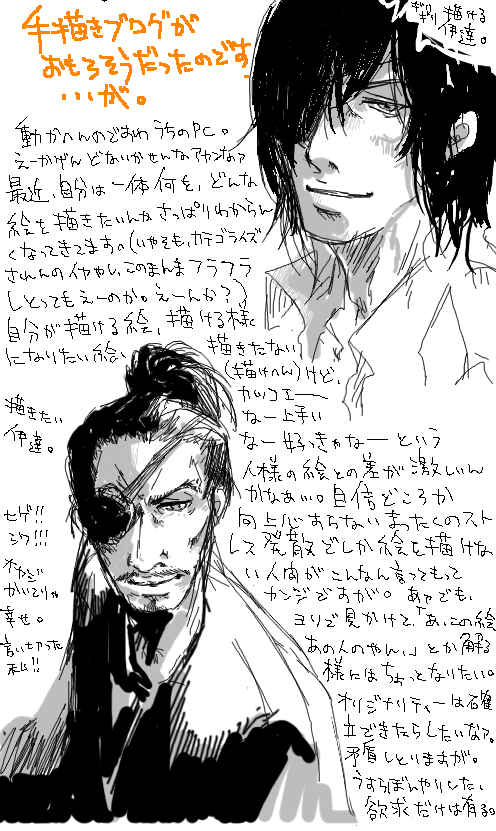 手描きブログが
おもろそうだったのです
・・・が。
ギリ描ける
伊達。
動かへんのですわうちのPC。
えーかげんどないかせんなアカンなァ
最近、自分は一体何を、どんな
絵を描きたいんかさっぱりわからん
くなってきてます。(いやそも、カテゴライズ
されんのイヤやし、このまんまフラフラ
しとってもえーのか。えーんか?)
自分が描ける絵、描ける様に
になりたい絵、
描きたない
(描けへん)けど、
カッコエー
なー上手い
なー好っきゃなーという
人様の絵との差が激しいん
かなあぃ。自信どころか
向上心すらないまったくのスト
レス発散でしか絵を描けな
い人間がこんなん言ってもって
カンジですが。あァでも、
ヨソで見かけて、「あ、この絵
あの人のやん。」とか解る
様にはちょっとなりたい。
オリジナリティーは確
立できたらしたいなァ。
矛盾しとりますが。
うすらぼんやりした
欲求だけは有る。
描きたい
伊達。
ヒゲ!!
シワ!!
オヤジ
かいてりゃ
幸せ。
言い切った
私!!